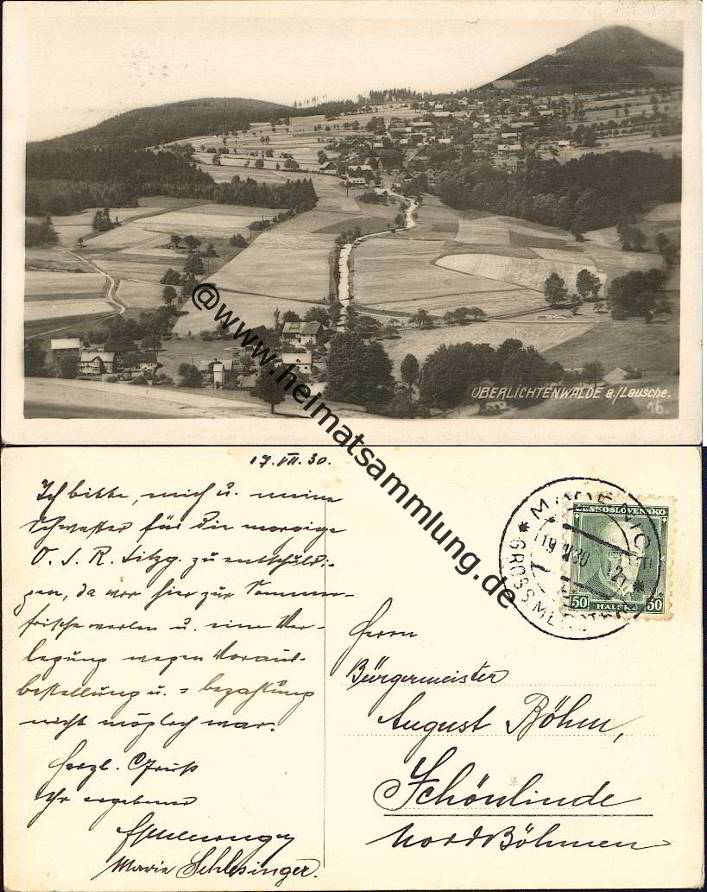 OBERLICHTENWALDE a./Lausche.
16.
@www.heimatsammlung.de
17.VII.30.
Ich bitte, mich u. meine
Schwester für die morgige
O. S. R. Sitzg. zu entschuldi-
gen, da wir hier zur Sommer-
frische weilen u. eine Ver-
legung wegen Voraus-
bestellung u. = bezahlung
nicht möglich war.
Herzl. Gruß
Ihr ergebene
Marie Schlesinger.
ČESKOSLOVENSKO
50 HALÉŘŮ 50
Herrn
Bürgermeister
August Böhm,
Schönlinde
Nordböhmen